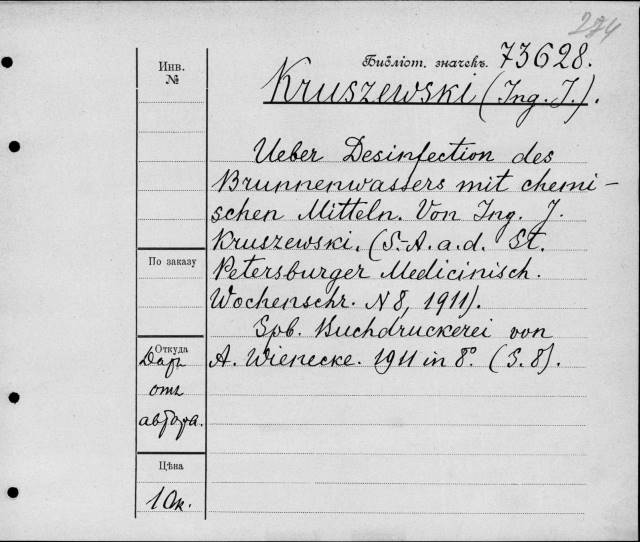 274
Библіот. значекъ. 73628.
Инв. №
Kruszewski (Ing. J.).
Ueber Desinfection des
Brunnenwassers mit chemi-
schen Mitteln. Von Ing. J.
Kruszewski. (S.-A. a. d. St.
По заказу
Petersburger Medicinisch.
Wochenschr. N 8, 1911).
Spb. Buchdruckerei von
A. Wienecke. 1911 in 8°. (S. 8).
Откуда
Даръ
отъ
автора.
Цѣна
10к.